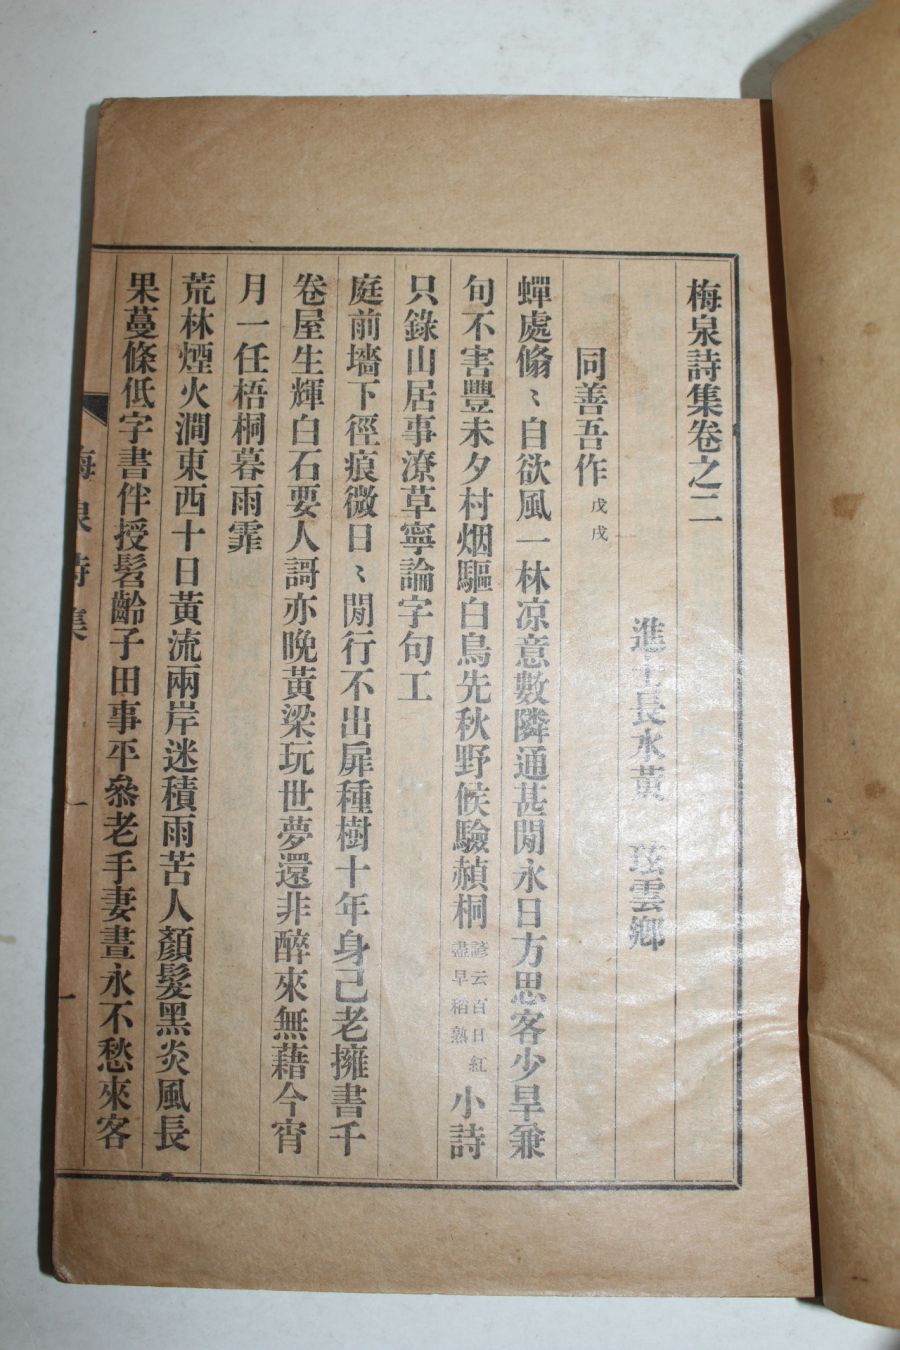 梅泉詩集卷之二
進士長水黃玹雲鄕
同善吾作 戊戌
蟬處翛〻自欲風一林凉意數隣通甚閒永日方思客少旱兼
旬不害豐未夕村烟驅白鳥先秋野候驗赬桐 諺云百日紅盡早稻熟 小詩
只錄山居事潦草寧論字句工
庭前墻下徑痕微日〻閒行不出扉種樹十年身已老擁書千
卷屋生輝白石要人謌亦晩黃梁玩世夢還非醉來無藉今宵
月一任梧桐暮雨霏
荒林煙火澗東西十日黃流兩岸迷積雨苦人顏髮黑炎風長
果蔓條低字書伴授髫齡子田事平叅老手妻晝永不愁來客
梅泉詩集
一